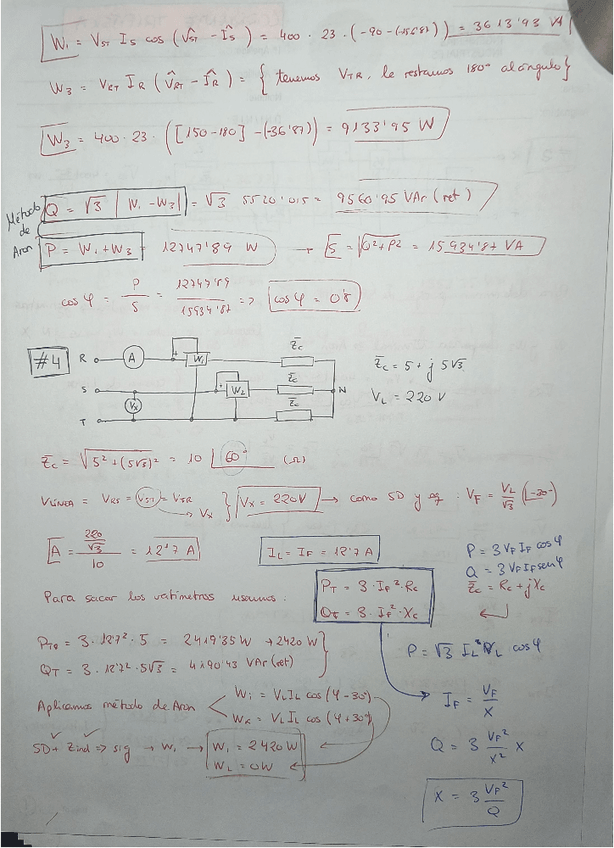 W₁ = V_ST I_S cos (V̂_ST - Î_S) = 400 · 23 · (-90 - (-156'87)) = 3613'93 VA
W₃ = V_RT I_R (V̂_RT - Î_R) = { tenemos V_TR, le restamos 180º al ángulo }
W₃ = 400 · 23 · ([150 - 180] - (-36'87)) = 9133'95 W
Método de Aron
Q = √3 | W₁ - W₃ | = √3 5520'015 = 9560'95 VAr (ret)
P = W₁ + W₃ = 12747'89 W → S = √Q² + P² = 15934'87 VA
cos φ = P/S = 12747'89/15934'87 => cos φ = 0'8
#4
R A W₁ Z̄c
S W₂ Z̄c N
T Vx Z̄c
Z̄c = 5 + j 5√3
V_L = 220 V
Z̄c = √5² + (5√3)² = 10 ∠60° (Ω)
V LÍNEA = V_RS = V_ST = V_TR } Vx = 220 V → como SD y eq : V_F = V_L/√3 ∠-30°
Vx
A = (220/√3)/10 = 12'7 A
I_L = I_F = 12'7 A
P = 3 V_F I_F cos φ
Q = 3 V_F I_F sen φ
Z̄c = Rc + jXc
Para sacar los vatímetros usamos :
P_T = 3 · I_F² · Rc
Q_T = 3 · I_F² · Xc
P = √3 I_L V_L cos φ
P_T = 3 · 12'7² · 5 = 2419'35 W → 2420 W
Q_T = 3 · 12'7² · 5√3 = 4190'43 VAr (ret)
I_F = V_F/X
Aplicamos método de Aron
W₁ = V_L I_L cos (φ - 30)
W₂ = V_L I_L cos (φ + 30)
Q = 3 V_F²/X² X
SD + Z ind => sig → W₁ → W₁ = 2420 W
W₂ = 0 W
X = 3 V_F²/Q